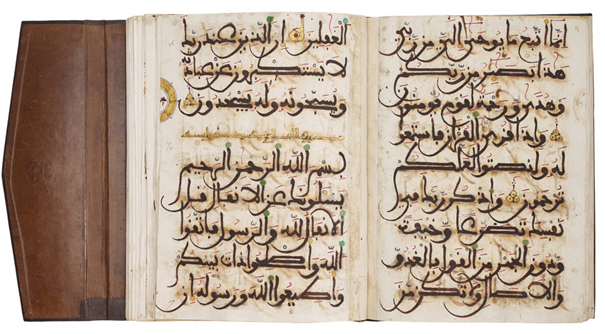 انما اتبع ما يوحى الي من ربي
هذا بصاير من ربكم
وهدى ورحمة لقوم يومنون
واذا قري القران فاستمعوا
له وانصتوا لعلكم
ترحمون واذكر ربك في
نفسك تضرعا وخيفة
ودون الجهر من القول بالغدو
والاصال ولا تكن من
الغفلين ان الذين عند ربك
لا يستكبرون عن عبادته
ويسبحونه وله يسجدون
بسم الله الرحمن الرحيم
يسلونك عن الانفال قل
الانفال لله والرسول فاتقوا
الله واصلحوا ذات بينكم
واطيعوا الله ورسوله ان